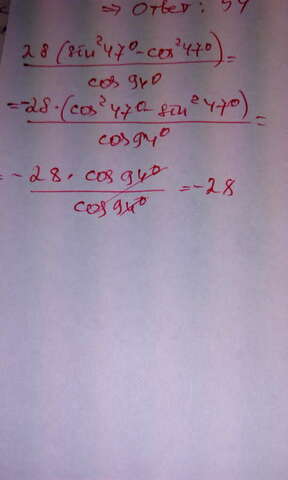 ⇒ Ответ: 54
28 (sin²47⁰-cos²47⁰) / cos 94⁰ =
= -28 · (cos²47⁰ - sin²47⁰) / cos94⁰ =
= -28 · cos94⁰ / cos94⁰ = -28